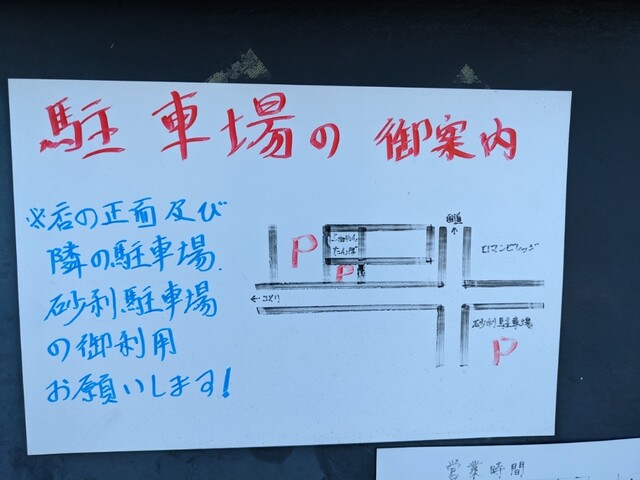 駐車場の御案内
※店の正面及び
隣の駐車場
砂利駐車場
の御利用
お願いします!
P
P
たんぽぽ
ロマンビレッジ
砂利駐車場
P
営業時間